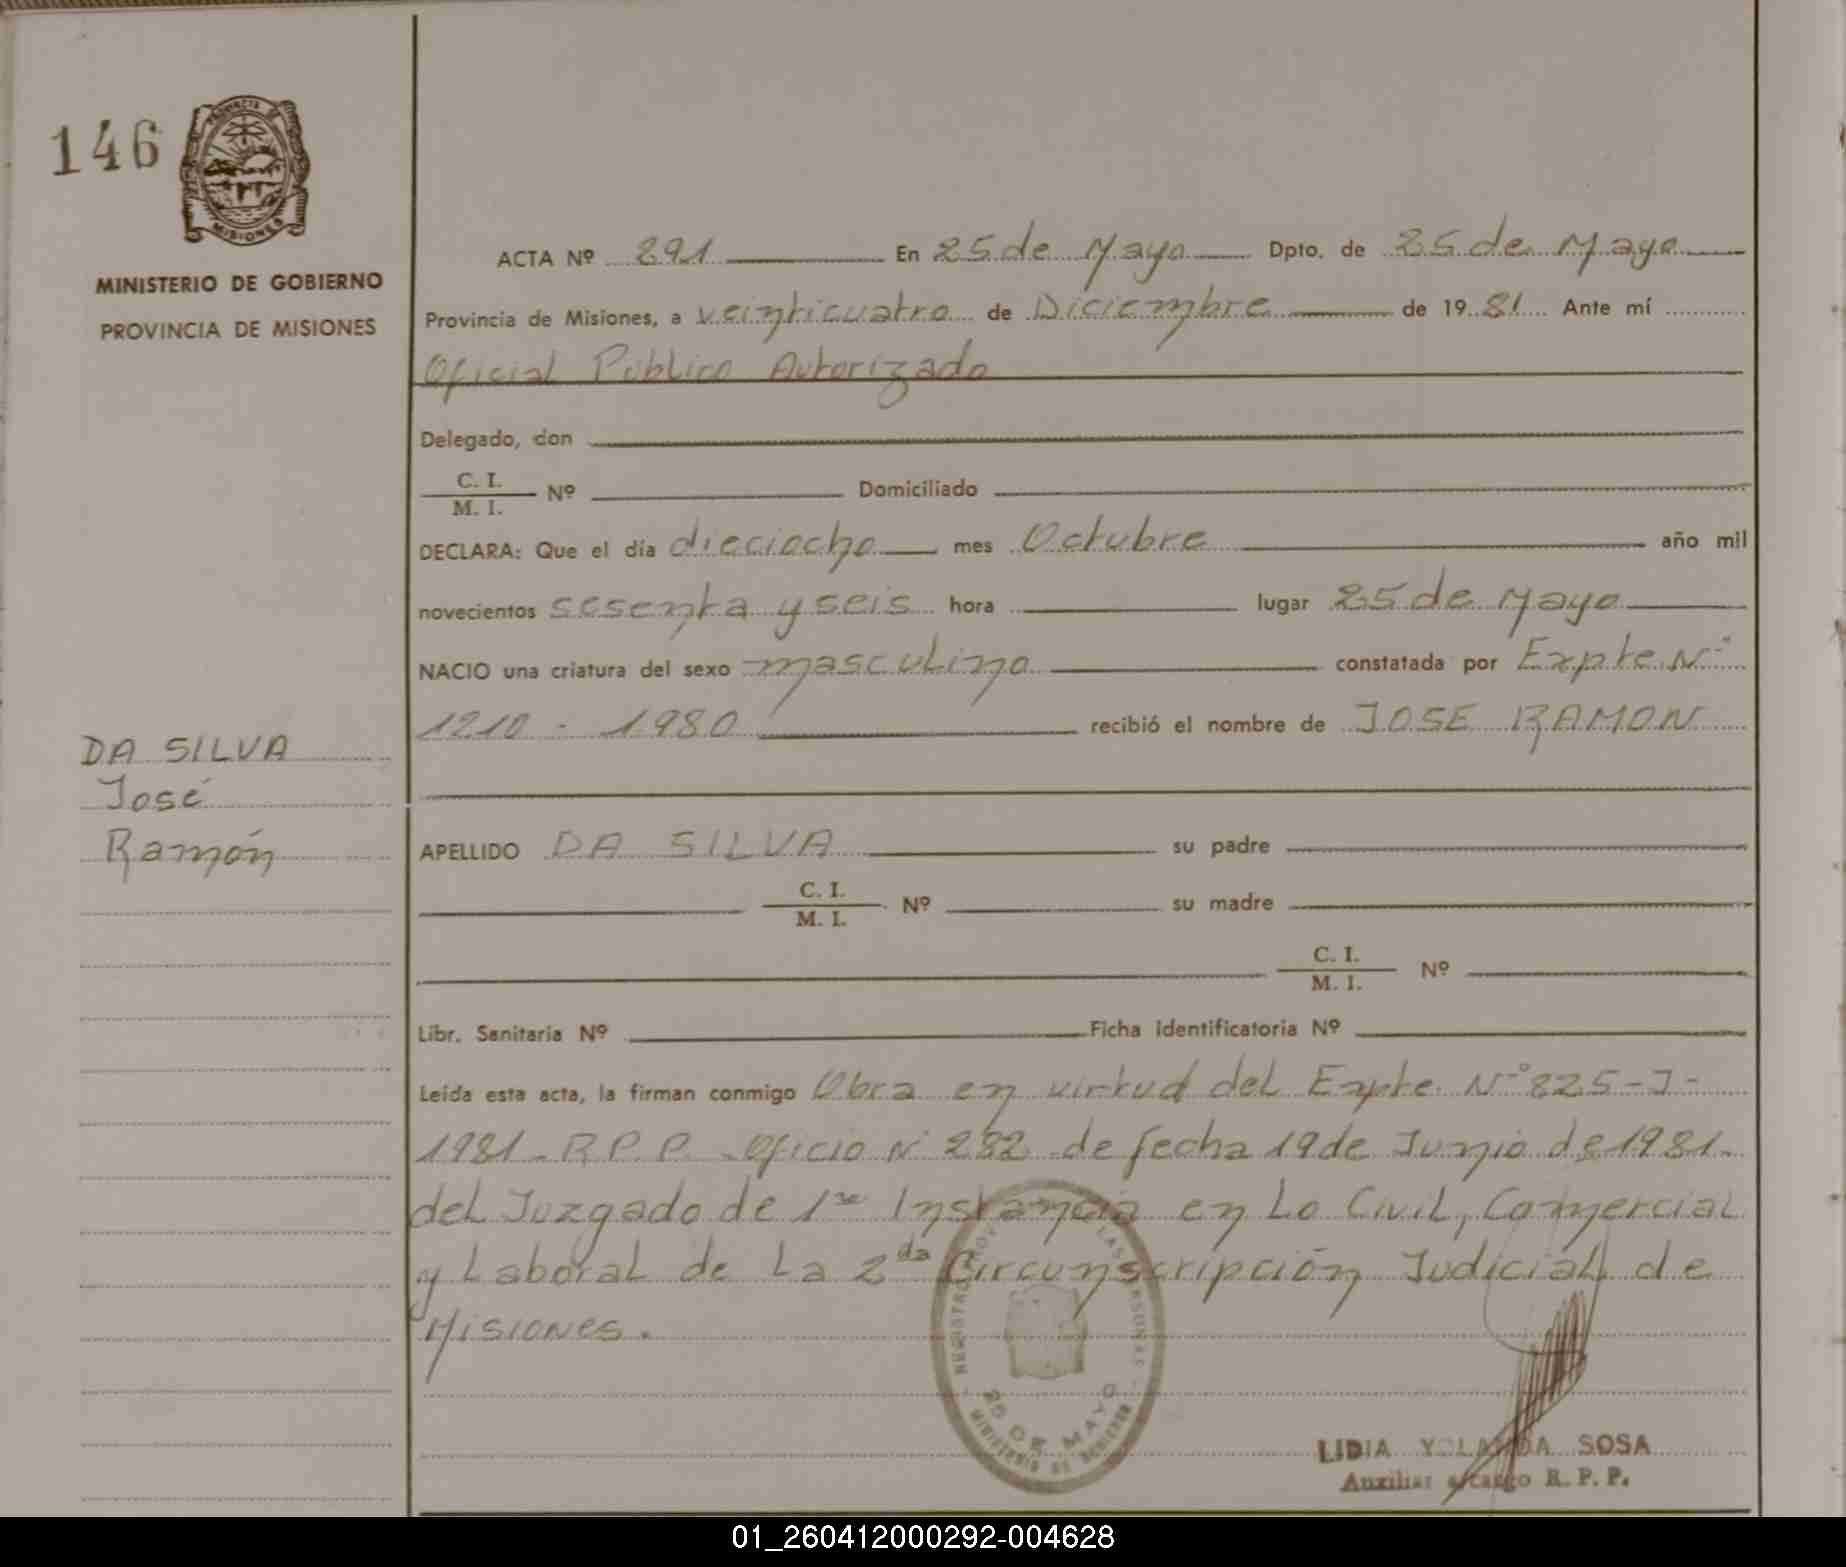 146
PROVINCIA DE
MISIONES
MINISTERIO DE GOBIERNO
PROVINCIA DE MISIONES
ACTA Nº 291 En 25 de Mayo Dpto. de 25 de Mayo
Provincia de Misiones, a veinticuatro de Diciembre de 1981 Ante mí
Oficial Público Autorizado
Delegado, don
C. I.
M. I. Nº Domiciliado
DECLARA: Que el día dieciocho mes Octubre año mil
novecientos sesenta y seis hora lugar 25 de Mayo
NACIO una criatura del sexo masculino constatada por Expte. Nº
1210 - 1980 recibió el nombre de JOSE RAMON
DA SILVA
José
Ramón
APELLIDO DA SILVA su padre
C. I.
M. I. Nº su madre
C. I.
M. I. Nº
Libr. Sanitaria Nº Ficha identificatoria Nº
Leída esta acta, la firman conmigo Obra en virtud del Expte. Nº 825-J-
1981- R.P.P. Oficio Nº 282 de fecha 19 de Junio de 1981.
del Juzgado de 1ra Instancia en Lo Civil, Comercial
y Laboral de La 2da Circunscripción Judicial de
Misiones.
REGISTRO LAS PERSONAS
25 DE MAYO
MINISTERIO DE GOBIERNO
LIDIA YOLANDA SOSA
Auxiliar a/cargo R. P. P.
01_260412000292-004628